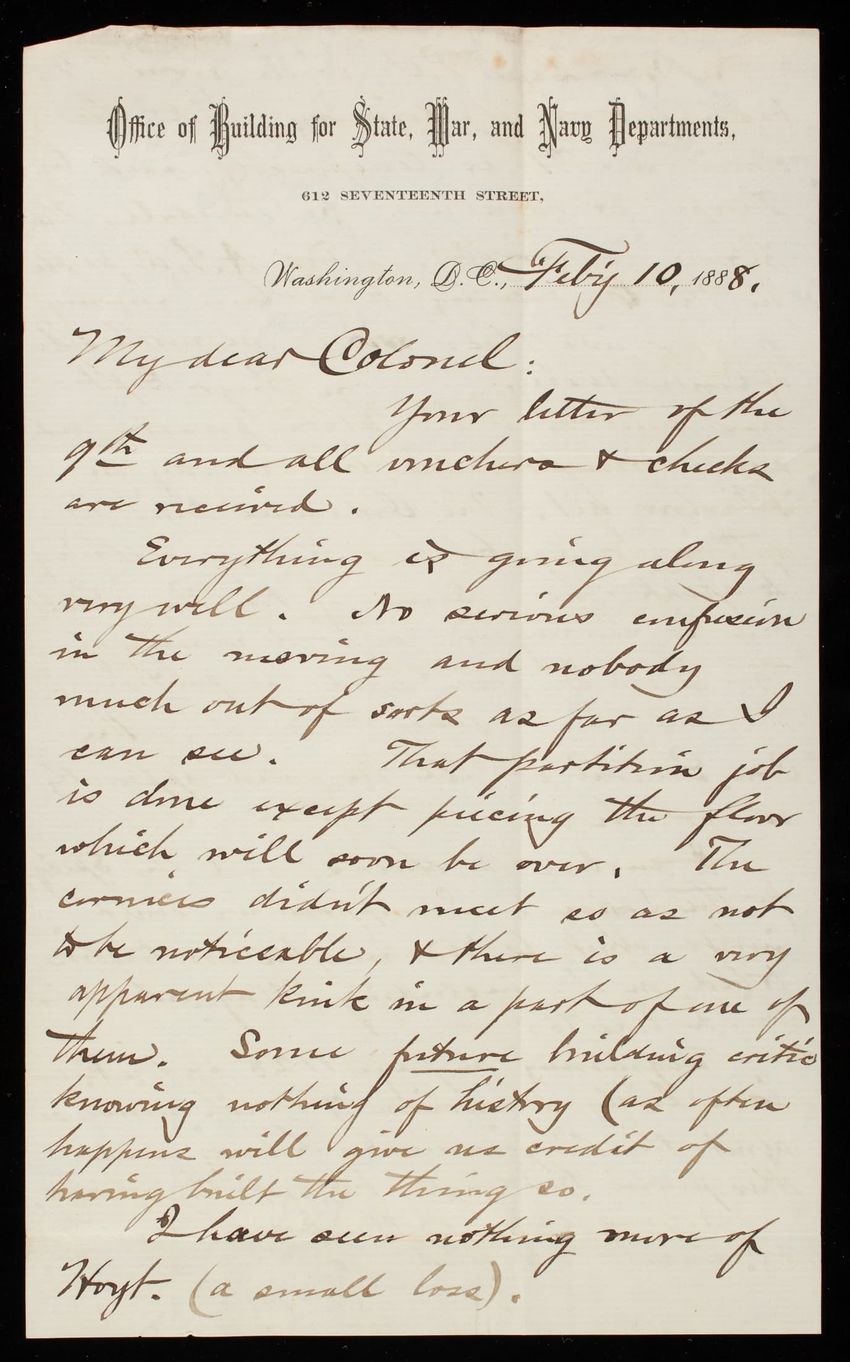 Office of Building for State, War, and Navy Departments,
612 SEVENTEENTH STREET,
Washington, D.C., Feb'y 10, 1888.
My dear Colonel:
Your letter of the
9th and all vouchers & checks
are received.
Everything is going along
very well. No serious confusion
in the moving and nobody
much out of sorts as far as I
can see. That partition job
is done except piecing the floor
which will soon be over. The
cornices didn't meet so as not
to be noticeable, & there is a very
apparent kink in a part of one of
them. Some future building critic
knowing nothing of history (as often
happens will give us credit of
having built the thing so.
I have seen nothing more of
Hoyt. (a small loss).